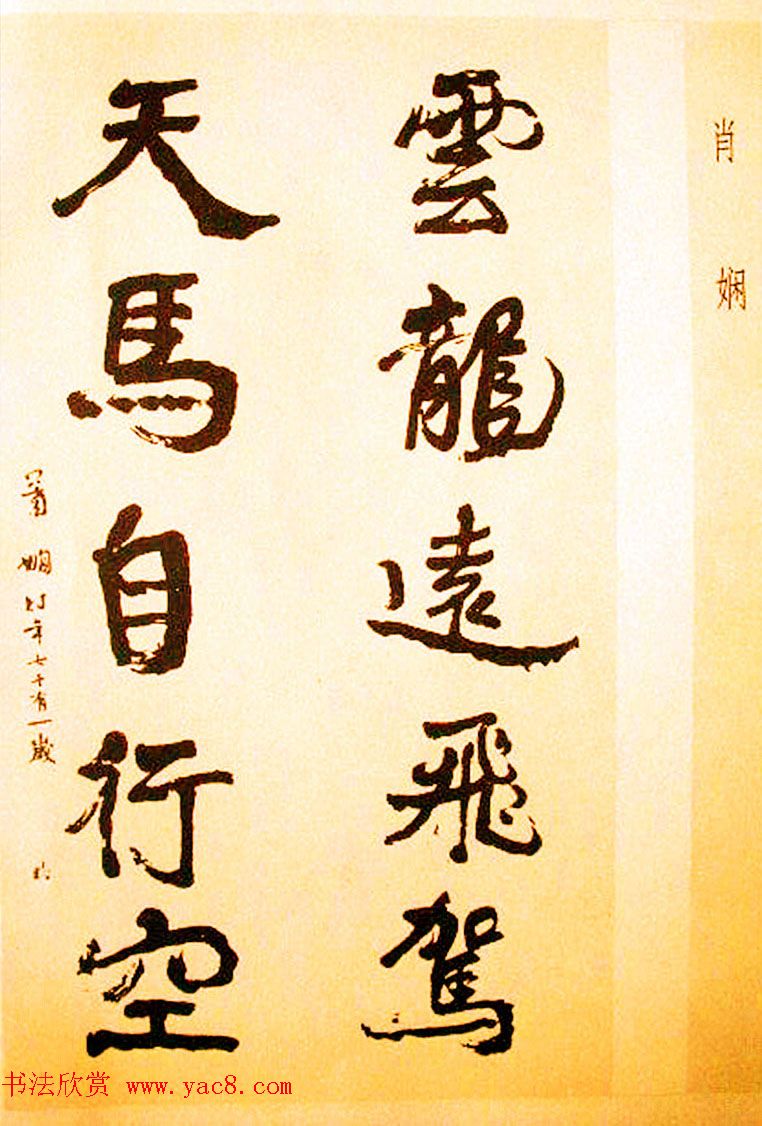 肖娴
雲龍遠飛駕
天馬自行空
蕭嫻時年七十有一歲
书法欣赏 www.yac8.com